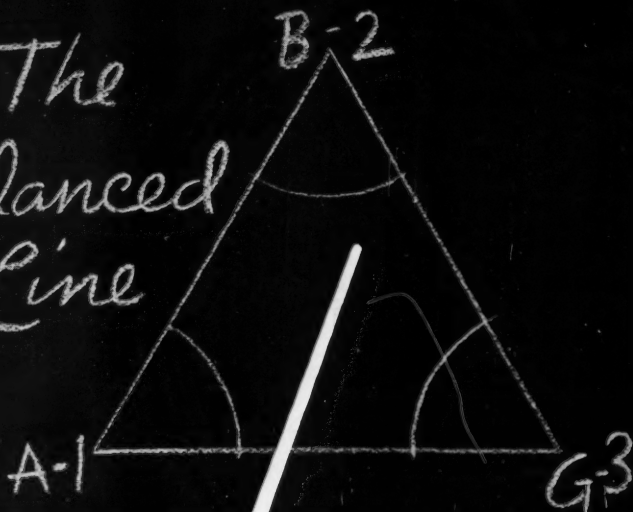 The
lanced
Line
B-2
A-1
G-3